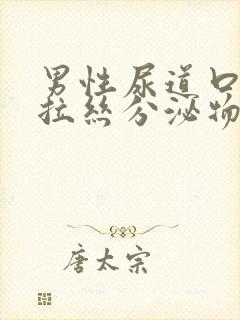 男性尿道口
拉絲分泌物
唐太宗